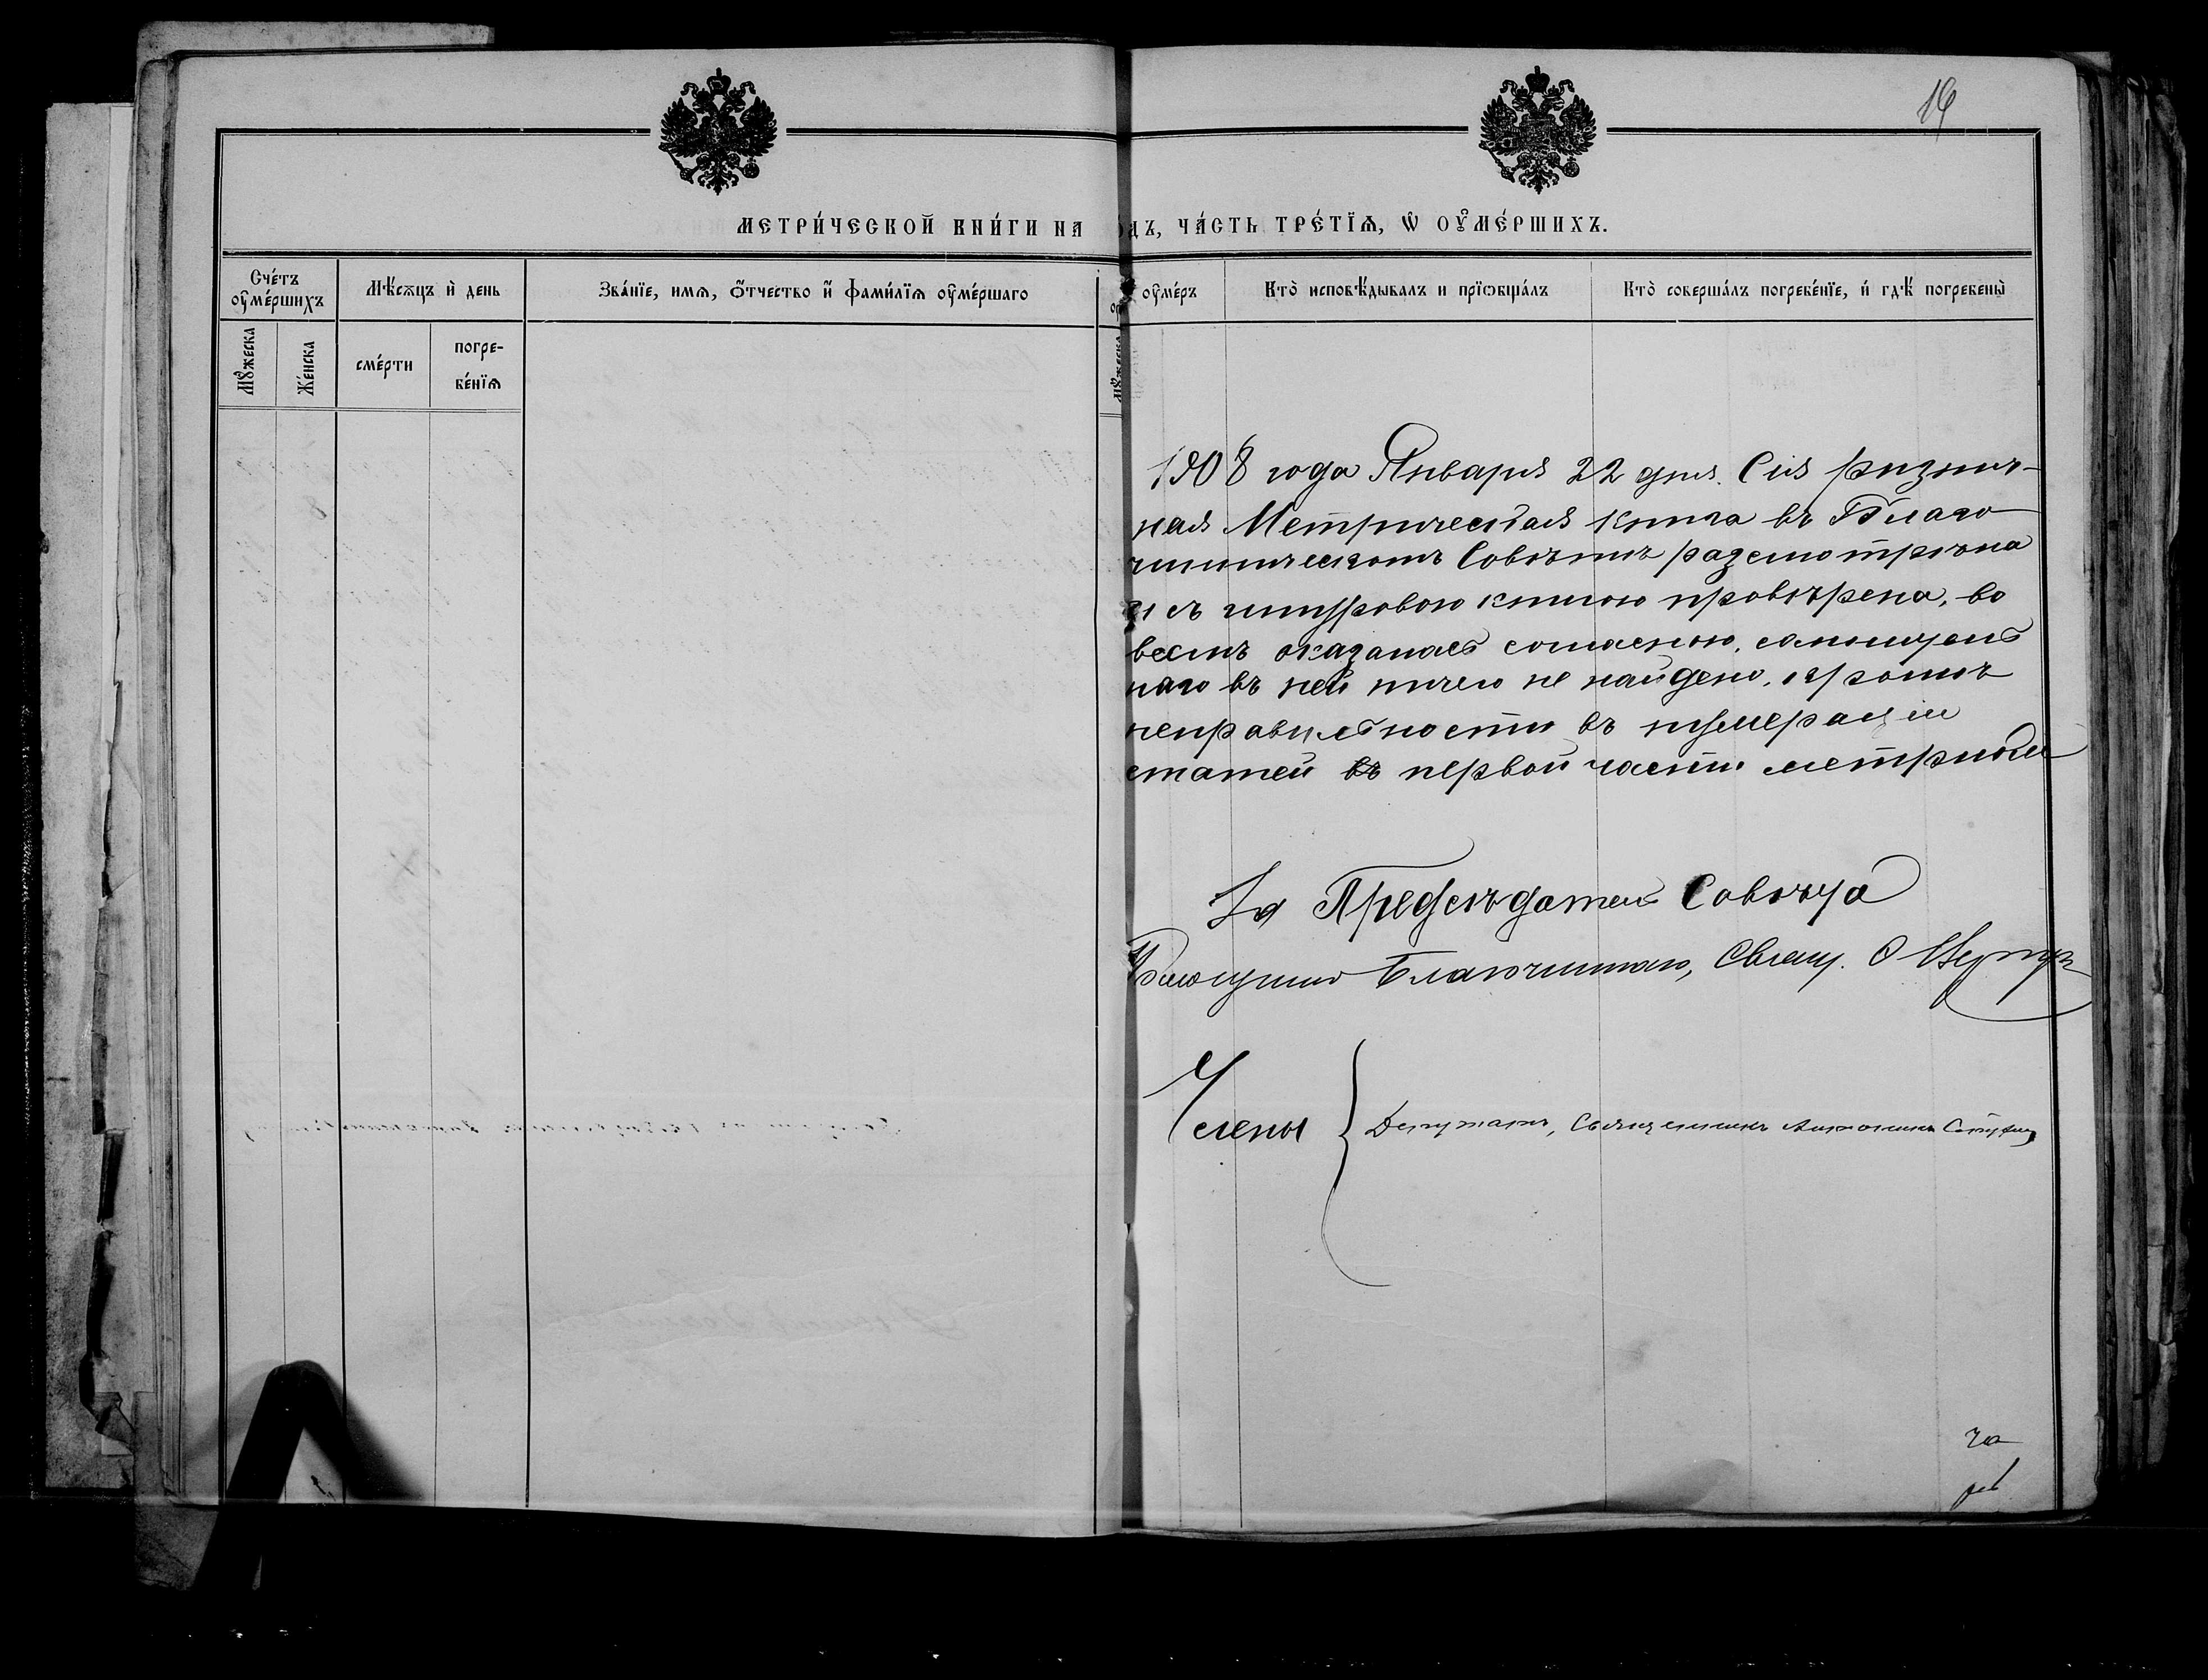 16
МЕТРИ́ЧЕСКОЙ КНИ́ГИ НА
ѻ́дъ, ЧА́СТЬ ТРЕ́ТЇѦ, Ѡ҆ ОУ҆МЕ́РШИХЪ.
Сче́тъ оу҆ме́ршихъ
Мѣ́сѧцъ и҆ день
Зва́нїе, имѧ, ѻ҆́тчество и҆ фами́лїѧ оу҆ме́ршаго
оу҆ме́ръ
Кто̀ исповѣ́дывалъ и прїѡбща́лъ
Кто̀ соверша́лъ погребе́нїе, и҆ гдѣ̀ погребены̀
Мꙋ́жеска
Же́нска
сме́рти
погре-
бе́нїѧ
Мꙋ́жеска
1908 года Января 22 дня. Сія ризнич-
ная Метрическая книга въ Благо
чинническомъ Совѣтѣ разсмотрѣна
и съ шнуровою книгою провѣрена, во
всемъ оказалась согласною, сомнитель
наго въ ней ничего не найдено, кромѣ
неправильности въ нумераціи
статей въ первой части метрики
За Предсѣдателя Совѣта
Благочинного, Свящ.
Члены { Депутатъ, Священникъ Антоній